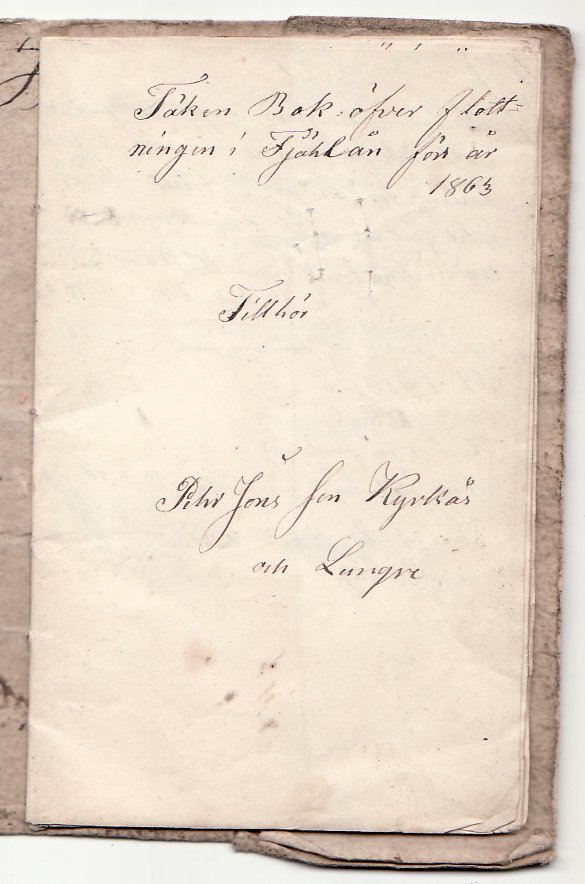 Täken Bok öfver flott=
ningen i Fjähl ån förs år
1863
Tillhör
Pehr Jons son Kyrkås
och Lungre